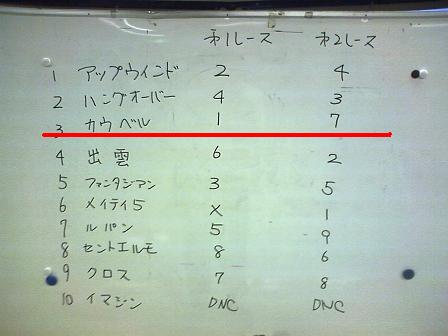 オ1レース オ2レース
1 アップウィンド 2 4
2 ハングオーバー 4 3
3 カウベル 1 7
4 出雲 6 2
5 ファンタジアン 3 5
6 メイテイ5 X 1
7 ルパン 5 9
8 セントエルモ 8 6
9 クロス 7 8
10 イマジン DNC DNC